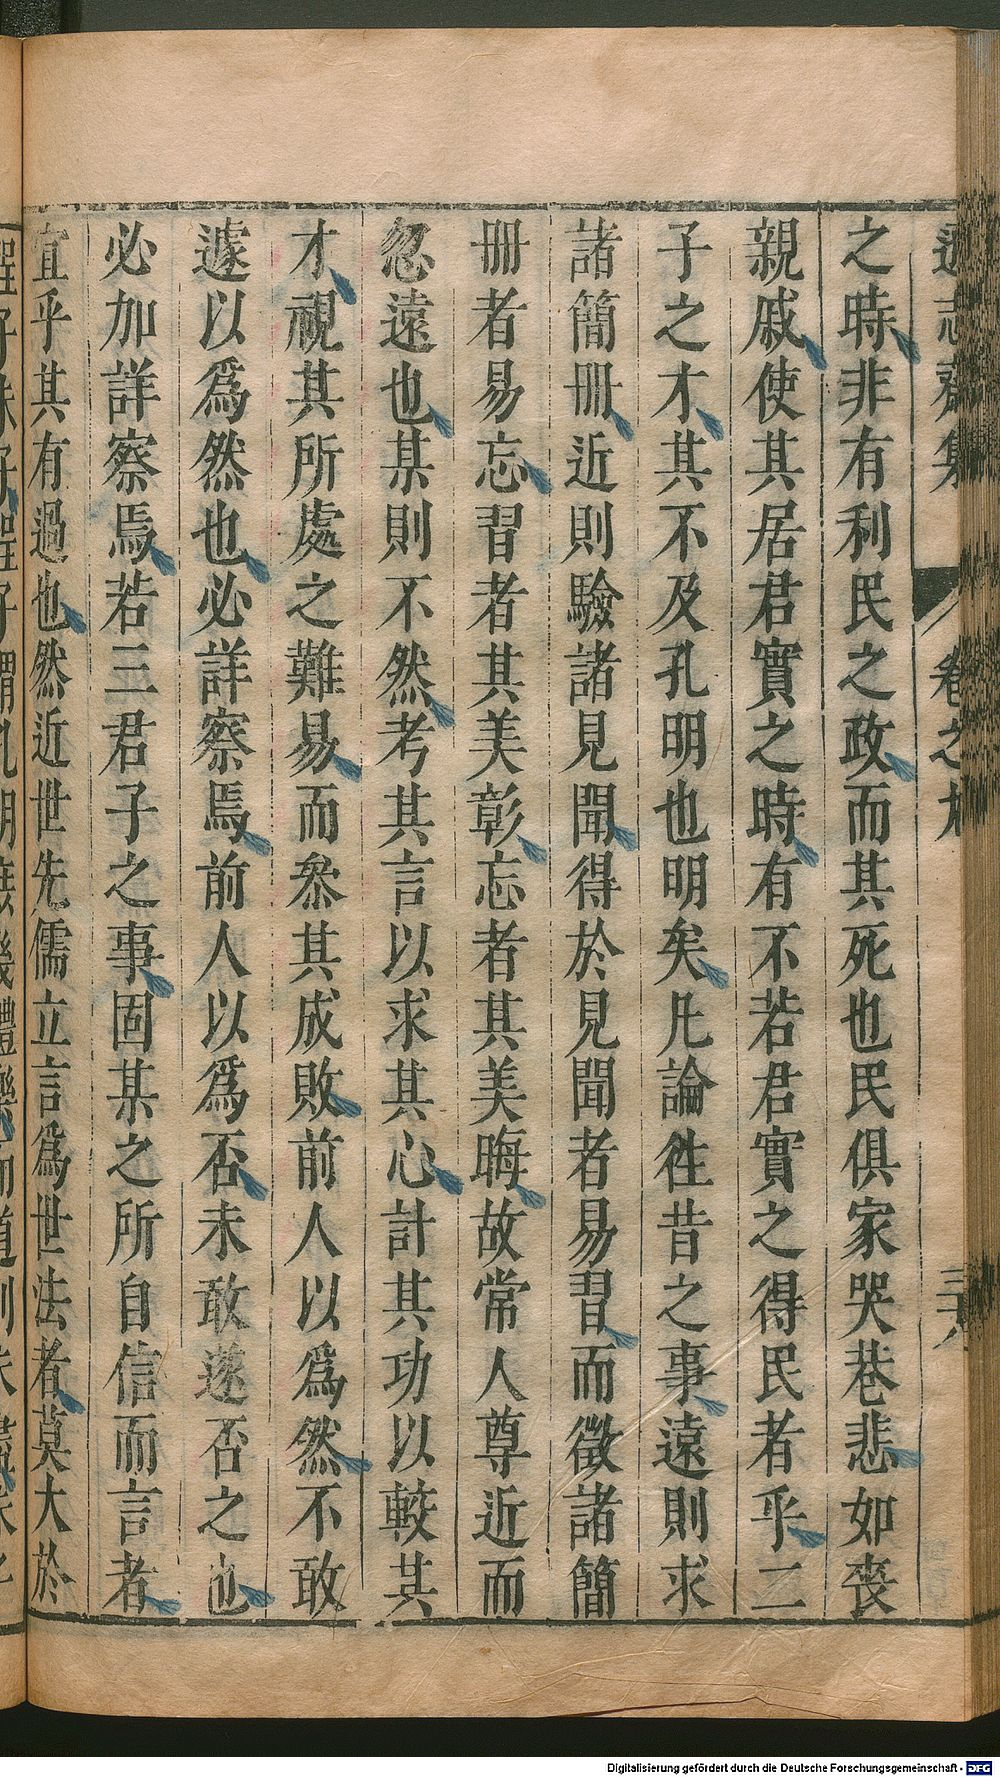 遜志齋集 卷之九 三六
之時非有利民之政而其死也民俱家哭巷悲如喪
親戚使其居君實之時有不若君實之得民者乎二
子之才其不及孔明也明矣凡論徃昔之事遠則求
諸簡冊近則驗諸見聞得於見聞者易習而徵諸簡
冊者易忘習者其美彰忘者其美晦故常人尊近而
忽遠也某則不然考其言以求其心計其功以較其
才視其所處之難易而叅其成敗前人以爲然不敢
遽以爲然也必詳察焉前人以爲否未敢遂否之也
必加詳察焉若三君子之事固某之所自信而言者
宜乎其有過也然近世先儒立言爲世法者莫大於
Digitalisierung gefördert durch die Deutsche Forschungsgemeinschaft - DFG